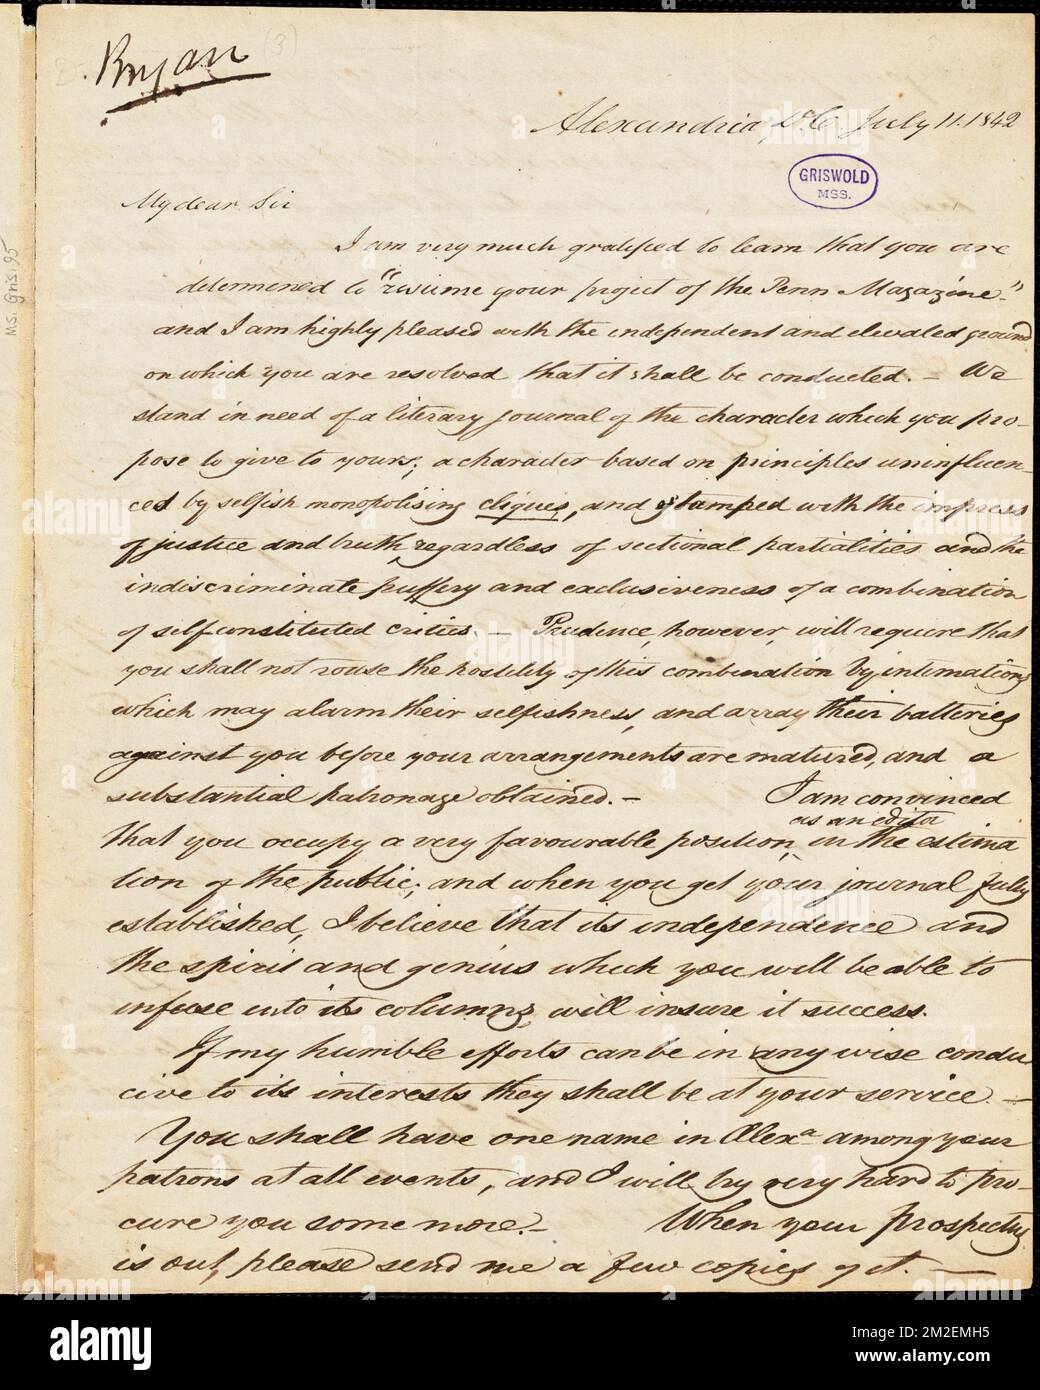 Bryan
(3)
Alexandria, D.C. July 11. 1842
GRISWOLD
MSS.
My dear Sir
I am very much gratified to learn that you are
determined to "resume your project of the Penn Magazine"
and I am highly pleased with the independent and elevated ground
on which you are resolved that it shall be conducted. – We
stand in need of a literary journal of the character which you pro-
pose to give to yours; a character based on principles uninfluen-
ced by selfish monopolising cliques, and stamped with the impress
of justice and truth, regardless of sectional partialities and the
indiscriminate puffery and exclusiveness of a combination
of self constituted critics. – Prudence, however, will require that
you shall not rouse the hostility of this combination by intimations
which may alarm their selfishness, and array their batteries
against you before your arrangements are matured, and a
substantial patronage obtained. – I am convinced
as an editor
that you occupy a very favourable position, in the estima
tion of the public; and when you get your journal fully
established, I believe that its independence and
the spirit and genius which you will be able to
infuse into its columns, will insure it success.
If my humble efforts can be in any wise condu
cive to its interests they shall be at your service. –
You shall have one name in Alexa among your
patrons at all events, and I will try very hard to pro-
cure you some more. – When your prospectus
is out, please send me a few copies of it. –
MS. Gris. 95
alamy
Image ID: 2M2EMH5
www.alamy.com